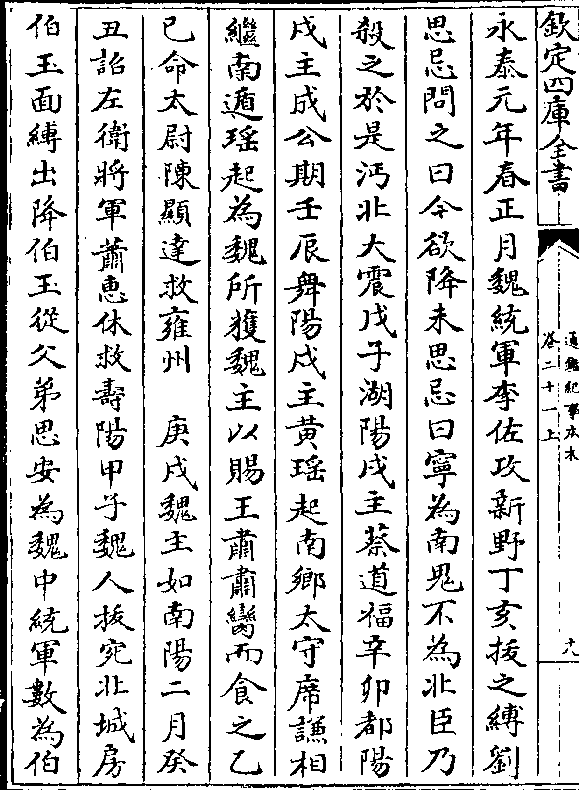 欽定四庫全書
通鑑紀事本末
卷二十一上
十九
永泰元年春正月魏統軍李佐攻新野丁亥拔之縛劉
思忌問之曰今欲降未思忌曰寧為南鬼不為北臣乃
殺之於是沔北大震戊子湖陽戍主蔡道福辛卯赭陽
戍主成公期壬辰舞陽戍主黄瑶起南鄉太守席謙相
繼南遁瑶起為魏所獲魏主以賜王肅肅臠而食之乙
巳命太尉陳顯達救雍州　庚戌魏主如南陽二月癸
丑詔左衛將軍蕭惠休救壽陽甲子魏人拔宛北城房
伯玉面縛出降伯玉從父弟思安為魏中統軍數為伯